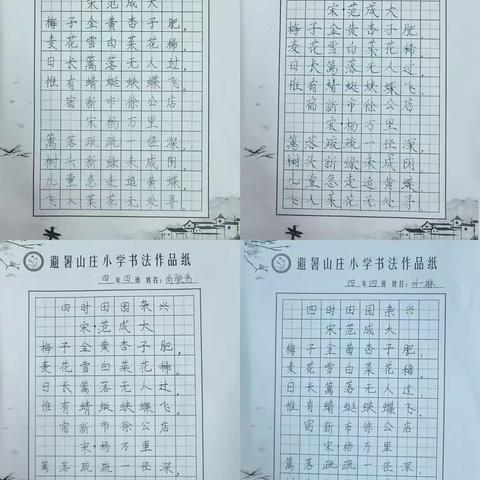 宋·范成大
梅子金黄杏子肥,
麦花雪白菜花稀。
日长篱落无人过,
惟有蜻蜓蛱蝶飞。
宿新市徐公店
宋·杨万里
篱落疏疏一径深,
树头新绿未成阴。
儿童急走追黄蝶,
飞入菜花无处寻
宋·范成大
梅子金黄杏子肥,
麦花雪白菜花稀。
日长篱落无人过,
惟有蜻蜓蛱蝶飞。
宿新市徐公店
宋·杨万里
篱落疏疏一径深,
树头新绿未成阴。
儿童急走追黄蝶,
飞入菜花无处寻
避暑山庄小学书法作品纸
四年四班 姓名:
四时田园杂兴
宋·范成大
梅子金黄杏子肥,
麦花雪白菜花稀。
日长篱落无人过,
惟有蜻蜓蛱蝶飞。
宿新市徐公店
宋·杨万里
篱落疏疏一径深,
避暑山庄小学书法作品纸
四年四班 姓名:叶琳
四时田园杂兴
宋·范成大
梅子金黄杏子肥,
麦花雪白菜花稀。
日长篱落无人过,
惟有蜻蜓蛱蝶飞。
宿新市徐公店
宋·杨万里
篱落疏疏一径深,